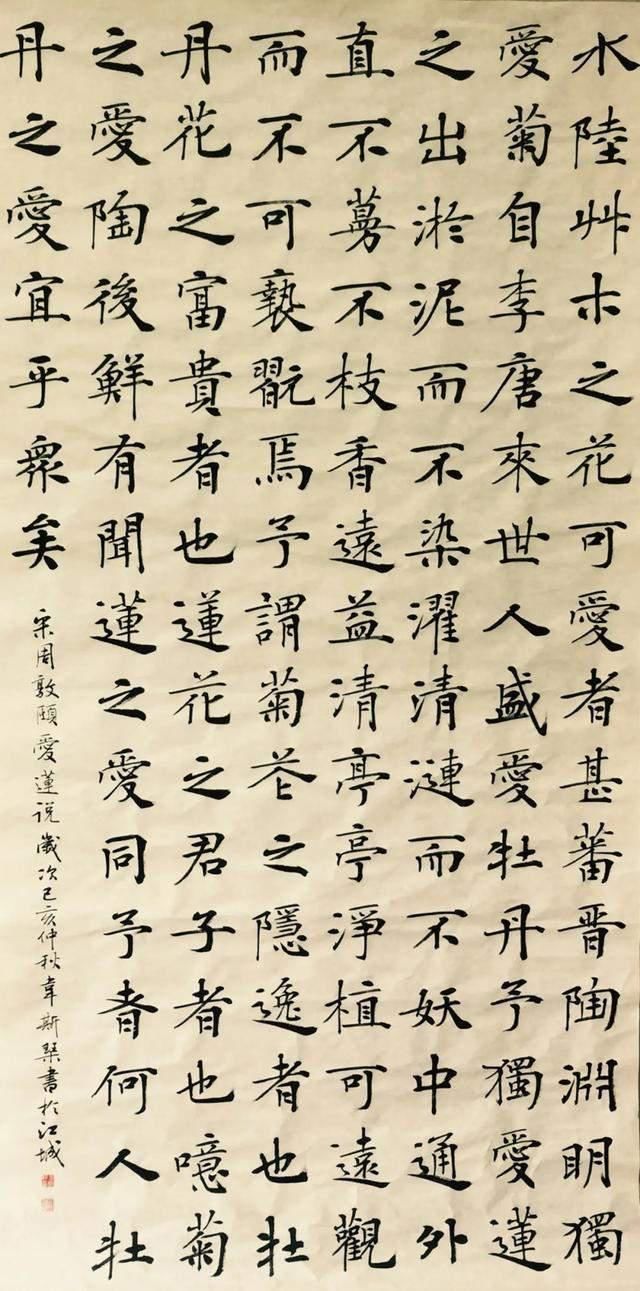 水陸艸木之花可愛者甚蕃晋陶淵明獨
愛菊自李唐來世人盛愛牡丹予獨愛蓮
之出淤泥而不染濯清漣而不妖中通外
直不蔓不枝香遠益清亭亭淨植可遠觀
而不可褻翫焉予謂菊花之隱逸者也牡
丹花之富貴者也蓮花之君子者也噫菊
之愛陶後鮮有聞蓮之愛同予者何人牡
丹之愛宜乎衆矣
宋周敦頤愛蓮说歲次己亥仲秋韋斯琴書於江城